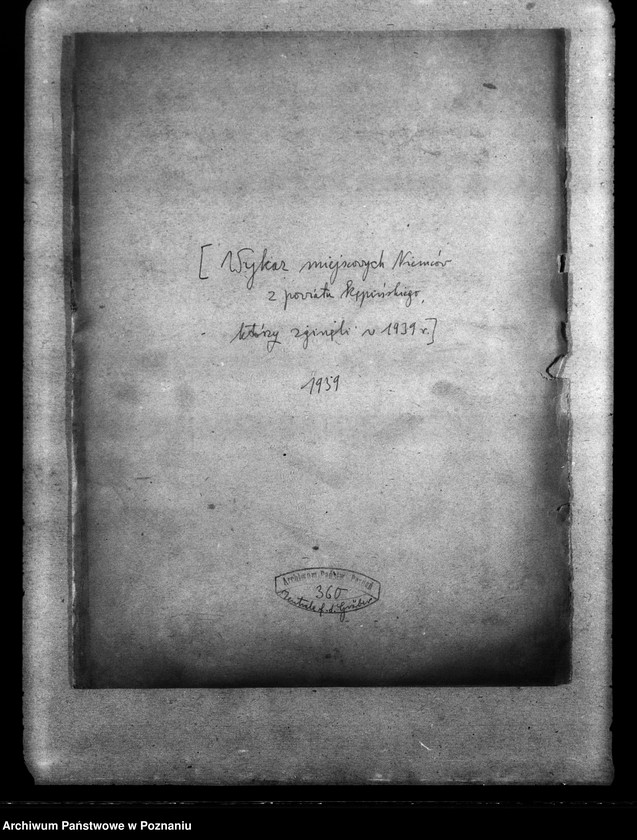 [ Wykaz miejscowych Niemców
z powiatu Kępińskiego,
którzy zginęli w 1939 r.]
1939
Archiwum Państw. Pozn.
360
Zentrale f. d. Gräber
Archiwum Państwowe w Poznaniu